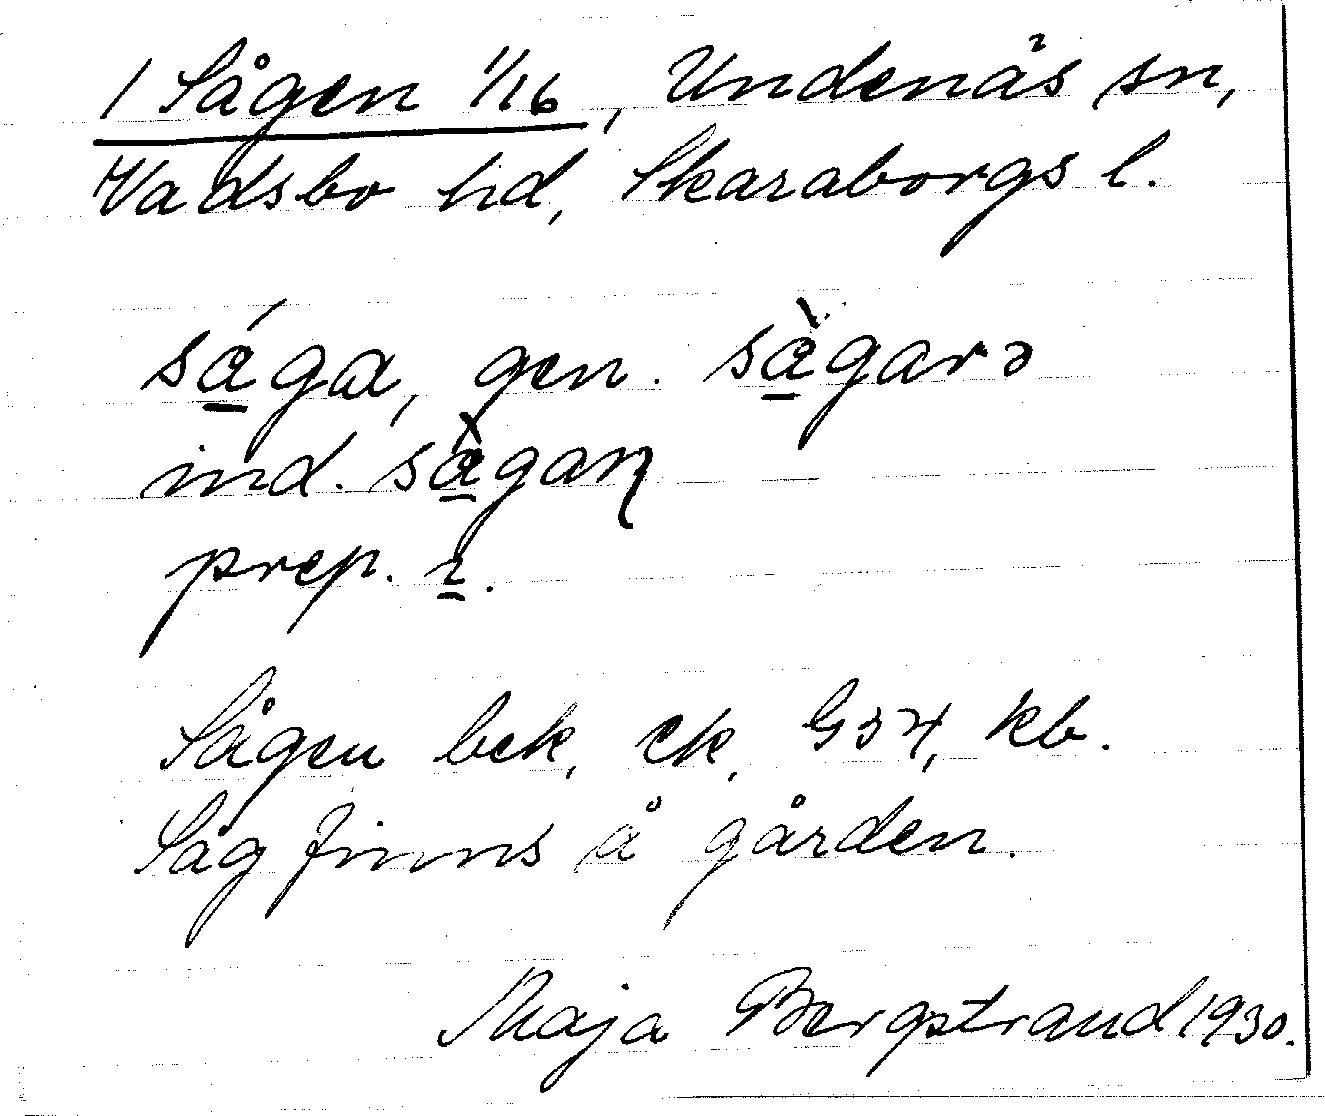 1 Sågen 1/16, Undenäs sn,
Vadsbo hd, Skaraborgs l.
sága, gen. sàgarə
ind. sàgaɳ
prep. ɩ.
Sågen bek, ek, G34, kb.
Såg finns å gården.
Maja Bergstrand 1930.